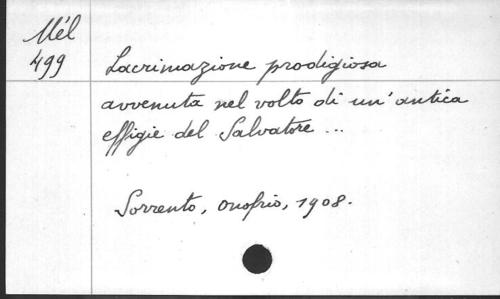 Mél
499
Lacrimazione prodigiosa
avvenuta nel volto di un'antica
effigie del Salvatore ...
Sorrento, Onofrio, 1908.